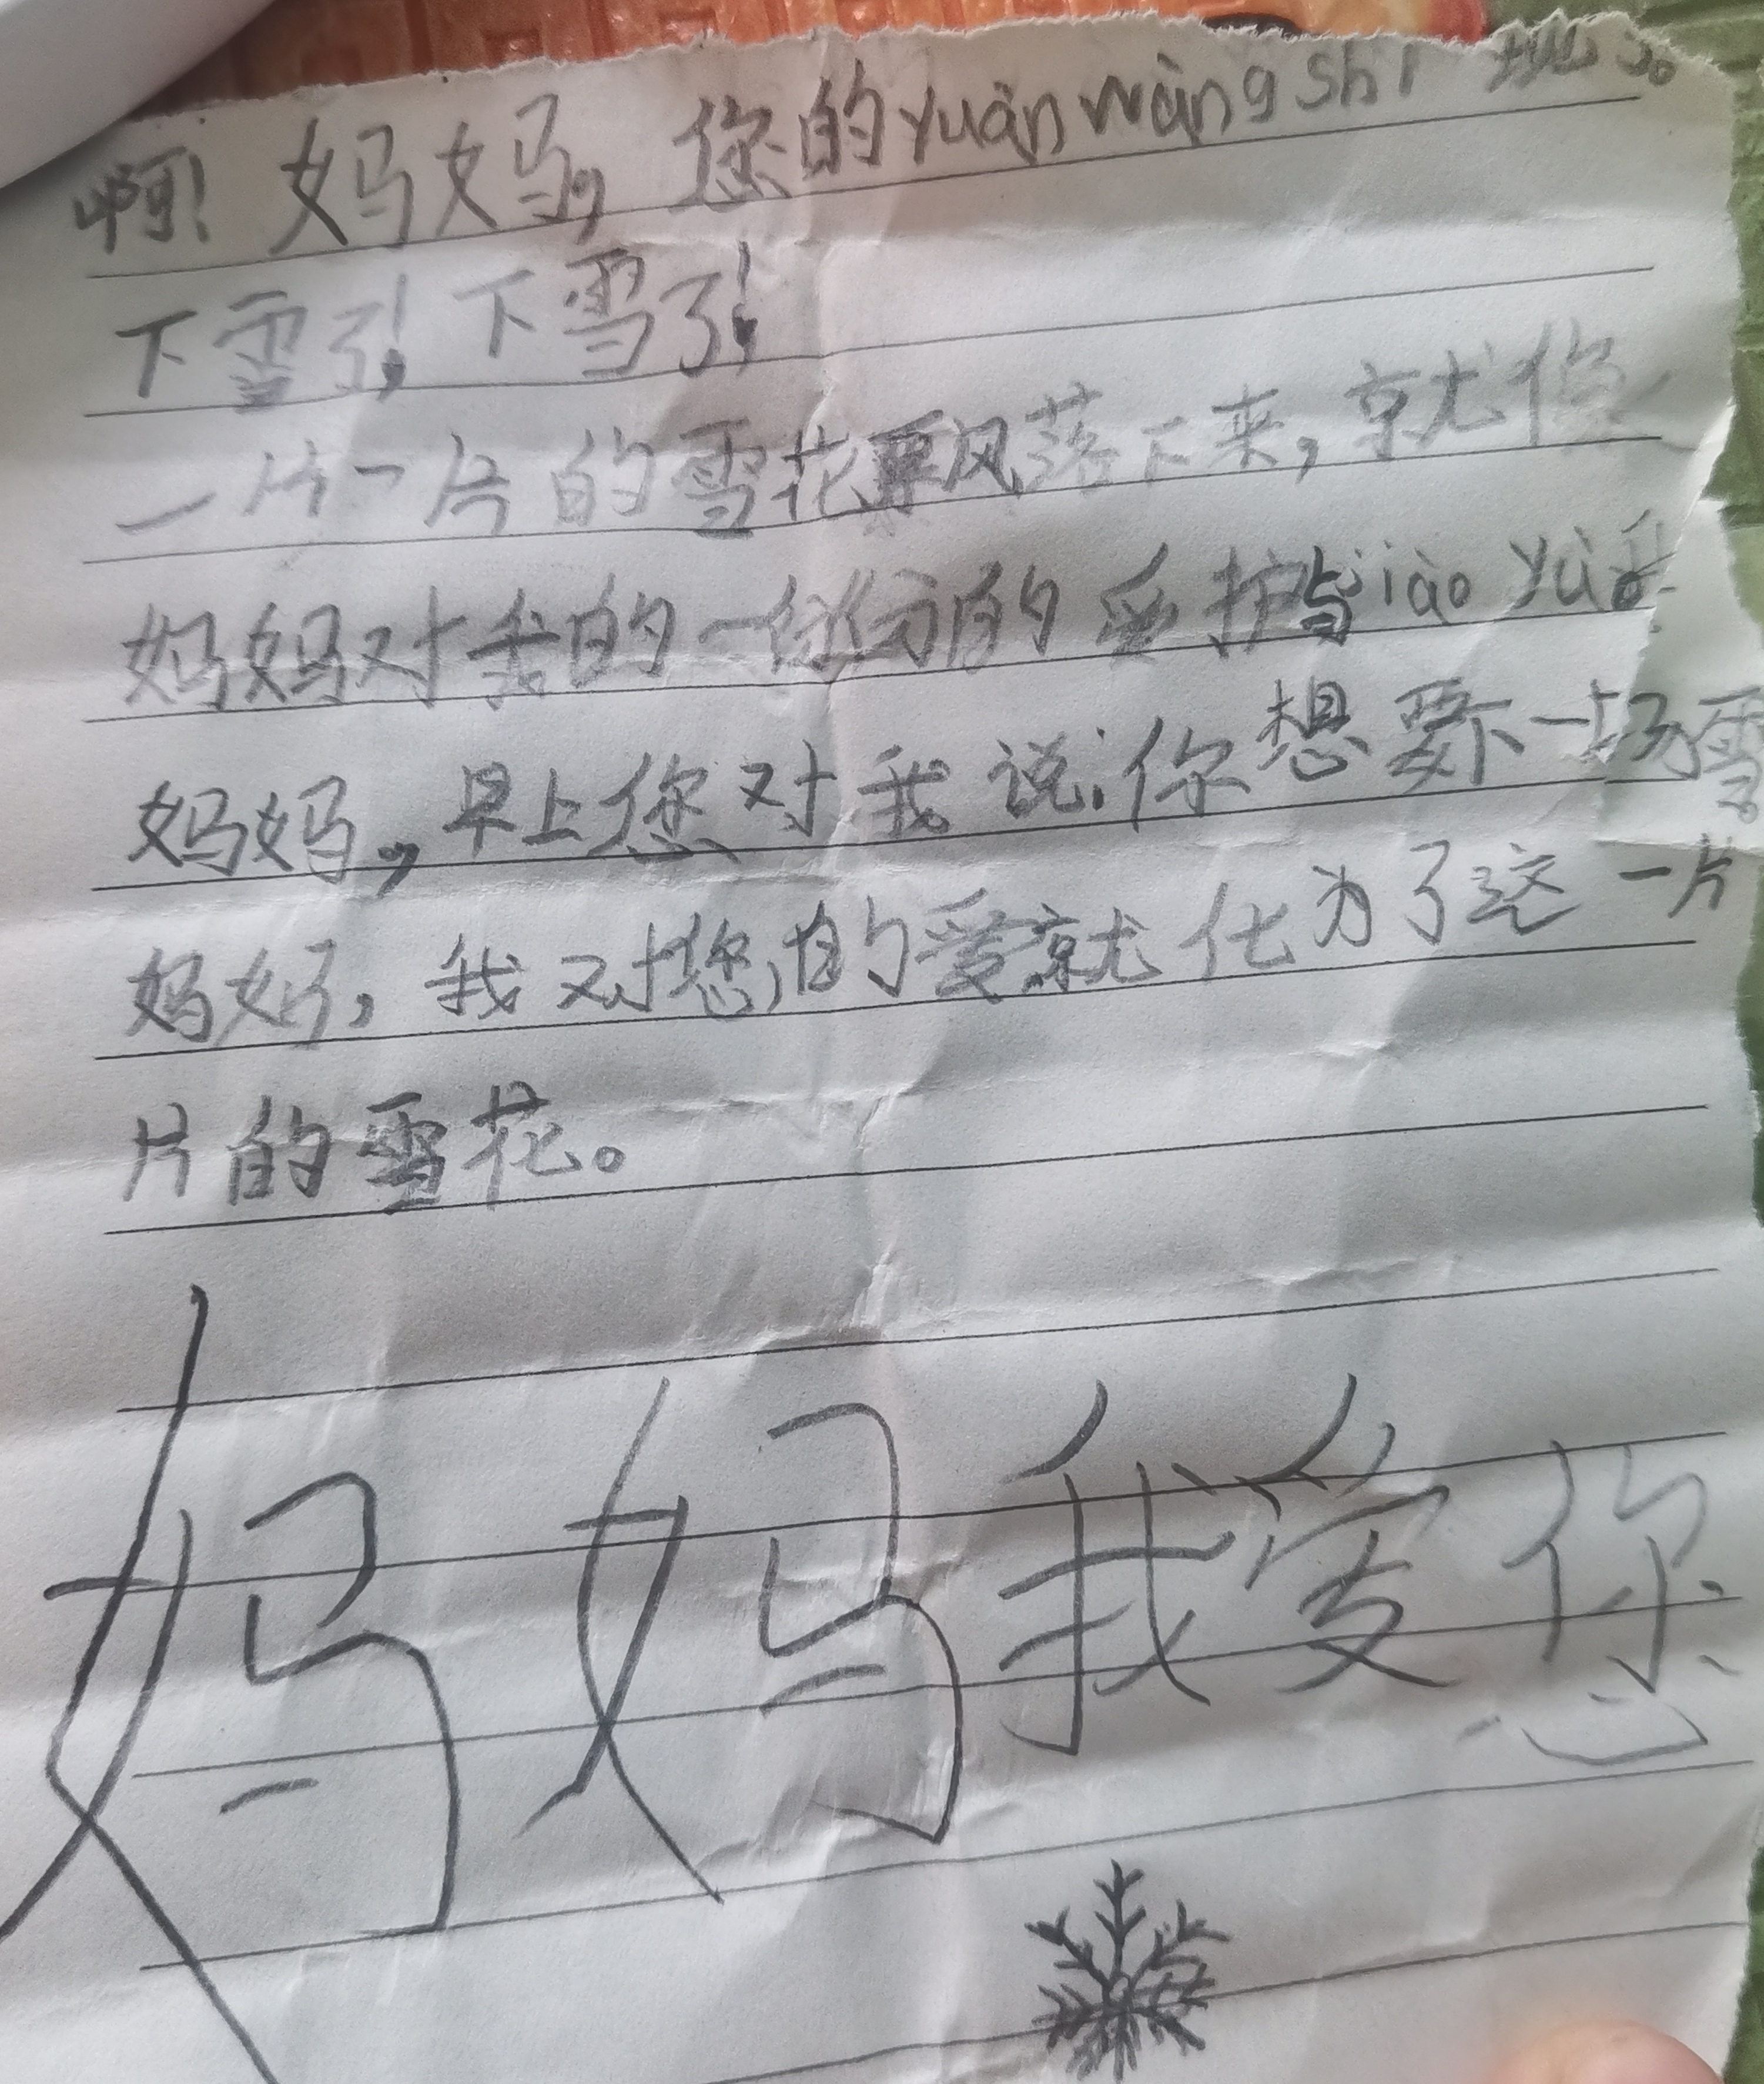 啊！妈妈，您的yuàn wàng shí 现了。
下雪了！下雪了！
一片一片的雪花乘风落下来，就像
妈妈对我的一份份的爱护与jiào yù。
妈妈，早上您对我说：你想要下一场雪。
妈妈，我对您的爱就化为了这一片
片的雪花。
妈妈我爱您